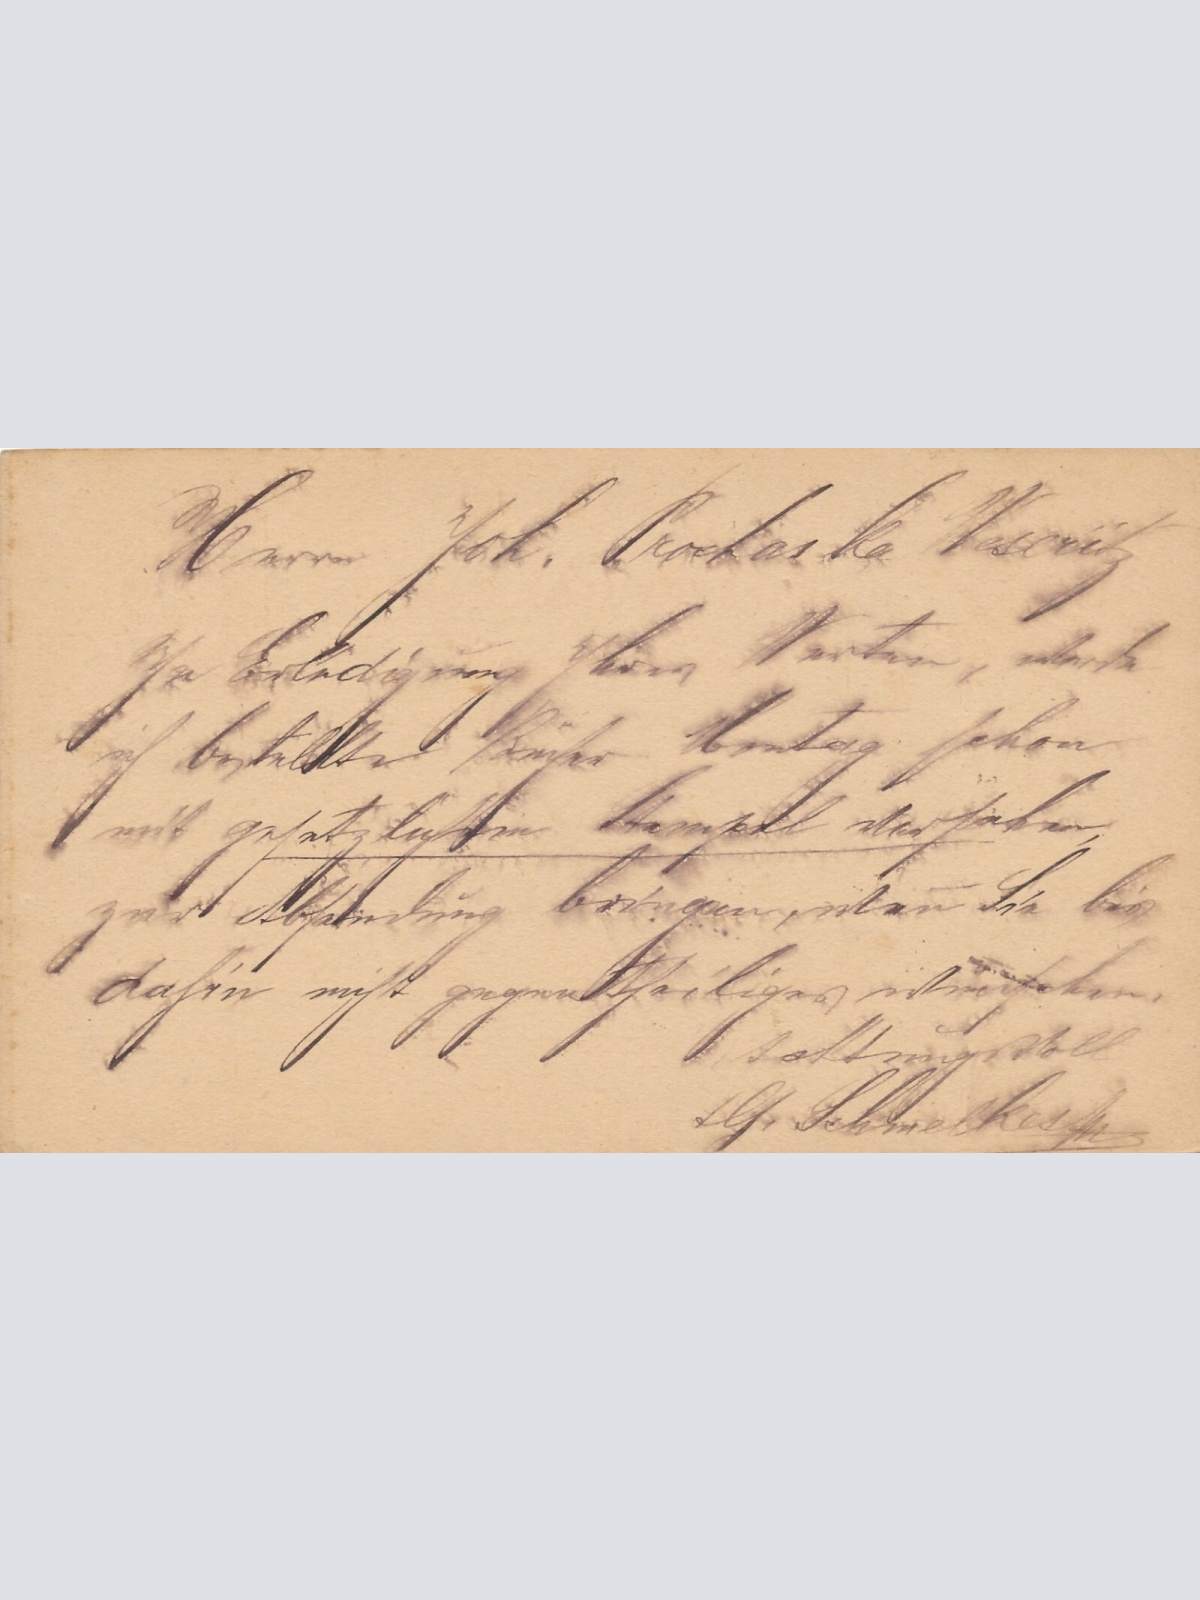 Herrn Joh. Prochaska
In Erledigung Ihres Werten, werde
ich bestellte Bücher Montag schon
mit gesetzlichen Stempel versehen,
zur Absendung bringen, wen̅ Sie bis
dahin nicht gegentheiliges wünschen.
Achtungsvoll
Schmelkes